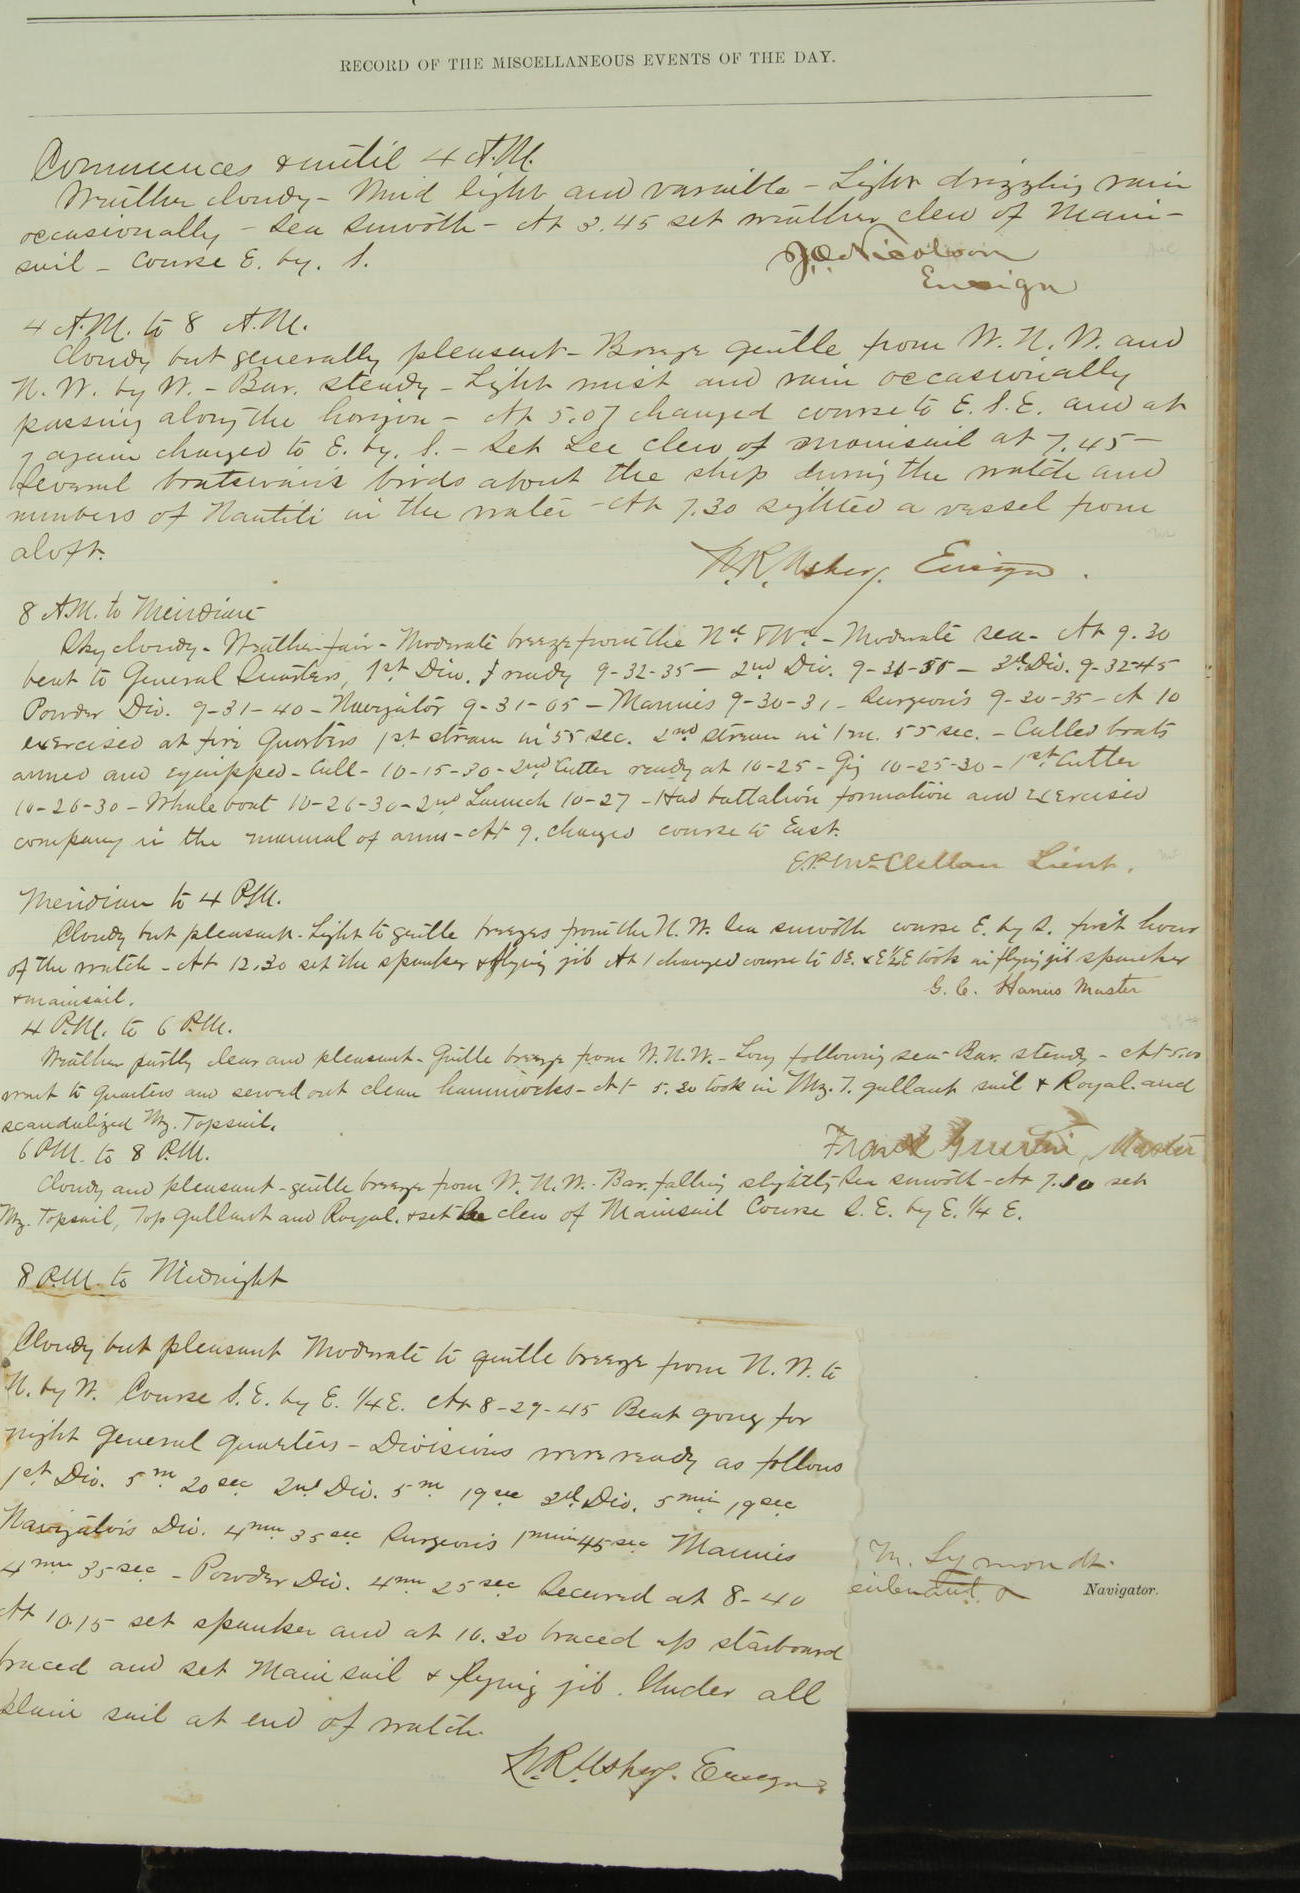 RECORD OF THE MISCELLANEOUS EVENTS OF THE DAY.
Commences & until 4 A.M.
Weather cloudy - Wind light and variable - Light drizzling rain
occasionally - Sea smooth - At 3.45 set weather clew of Main-
sail - Course E. by. S.
Nicolson
Ensign
4 A.M. to 8 A.M.
Cloudy but generally pleasant - Breeze gentle from W. N. W. and
N. W. by W. - Bar. steady - Light mist and rain occasionally
passing along the horizon - At 5.07 changed course to E. S. E. and at
7 again changed to E. by. S. - Set Lee clew of mainsail at 7.45 -
Several boatswain's birds about the ship during the watch and
numbers of Nautili in the water - At 7.30 sighted a vessel from
aloft.
W. R. Usher. Ensign.
8 A.M. to Meridian
Sky cloudy - Weather fair - Moderate breeze from the Nd & Wd - Moderate sea - At 9.30
beat to General Quarters, 1st Div. ready 9-32-35 - 2nd Div. - 3d Div. 9-32-45
Powder Div. 9-31-40 - Navigator 9-31-05 - Marines 9-30-31 - Surgeon's 9-30-35 - At 10
exercised at fire Quarters 1st stream in 55 sec. 2nd stream in 1m. 55 sec. - Called boats
armed and equipped - Call - 10-15-30 - 2nd Cutter ready at 10-25 - Gig 10-25-30 - 1st Cutter
10-26-30 - Whale boat 10-26-30 - 2nd Launch 10-27 - Had battalion formation and exercised
company in the manual of arms - At 9. changed course to East.
E. P. McClellan Lieut.
Meridian to 4 P.M.
Cloudy but pleasant. Light to gentle breezes from the N. W. Sea smooth course E. by S. first hour
of the watch - At 12.30 set the spanker & flying jib At 1 changed course to took in flying jib spanker
& mainsail.
G. C. Hanus Master
4 P.M. to 6 P.M.
Weather partly clear and pleasant - Gentle breeze from W. N. W. - Long following sea - Bar. steady - At 5.00
went to quarters and served out clean hammocks - At 5.30 took in Mz. T. gallant sail & Royal. and
scandalized Mz. Topsail.
Master
6 P.M. to 8 P.M.
Cloudy and pleasant - gentle breeze from W. N. W. - Bar. falling slightly Sea smooth - At 7.10 set
Mz. Topsail, Top Gallant and Royal. & set lee clew of Mainsail Course S. E. by E. 1/4 E.
8 P.M. to Midnight
Cloudy but pleasant Moderate to gentle breeze from N. W. to
N. by W. Course S. E. by E. 1/4 E. At 8-29-45 Beat gong for
night General quarters - Divisions were ready as follows
1st Div. 5m 20sec 2nd Div. 5m 19sec 3d Div. 5min 19sec
Navigator's Div. 4min 35sec Surgeon's 1min 45sec Marines
4min 35sec - Powder Div. 4min 25sec Secured at 8-40
At 10.15 set spanker and at 10.30 braced up starboard
braced and set Mainsail & flying jib. Under all
plain sail at end of watch.
W. R. Usher. Ensign
M. Symonds.
Navigator.